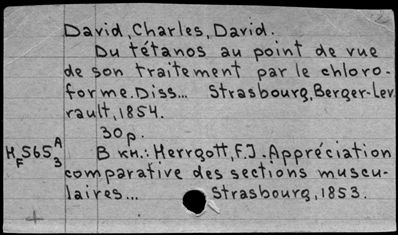 David, Charles, David.
Du tétanos au point de vue
de son traitement par le chloro-
forme. Diss... Strasbourg, Berger-Lev
rault, 1854.
30p.
HF565 A/3 В кн.: Herrgott, F.J. Appréciation
comparative des sections muscu-
laires... Strasbourg, 1853.